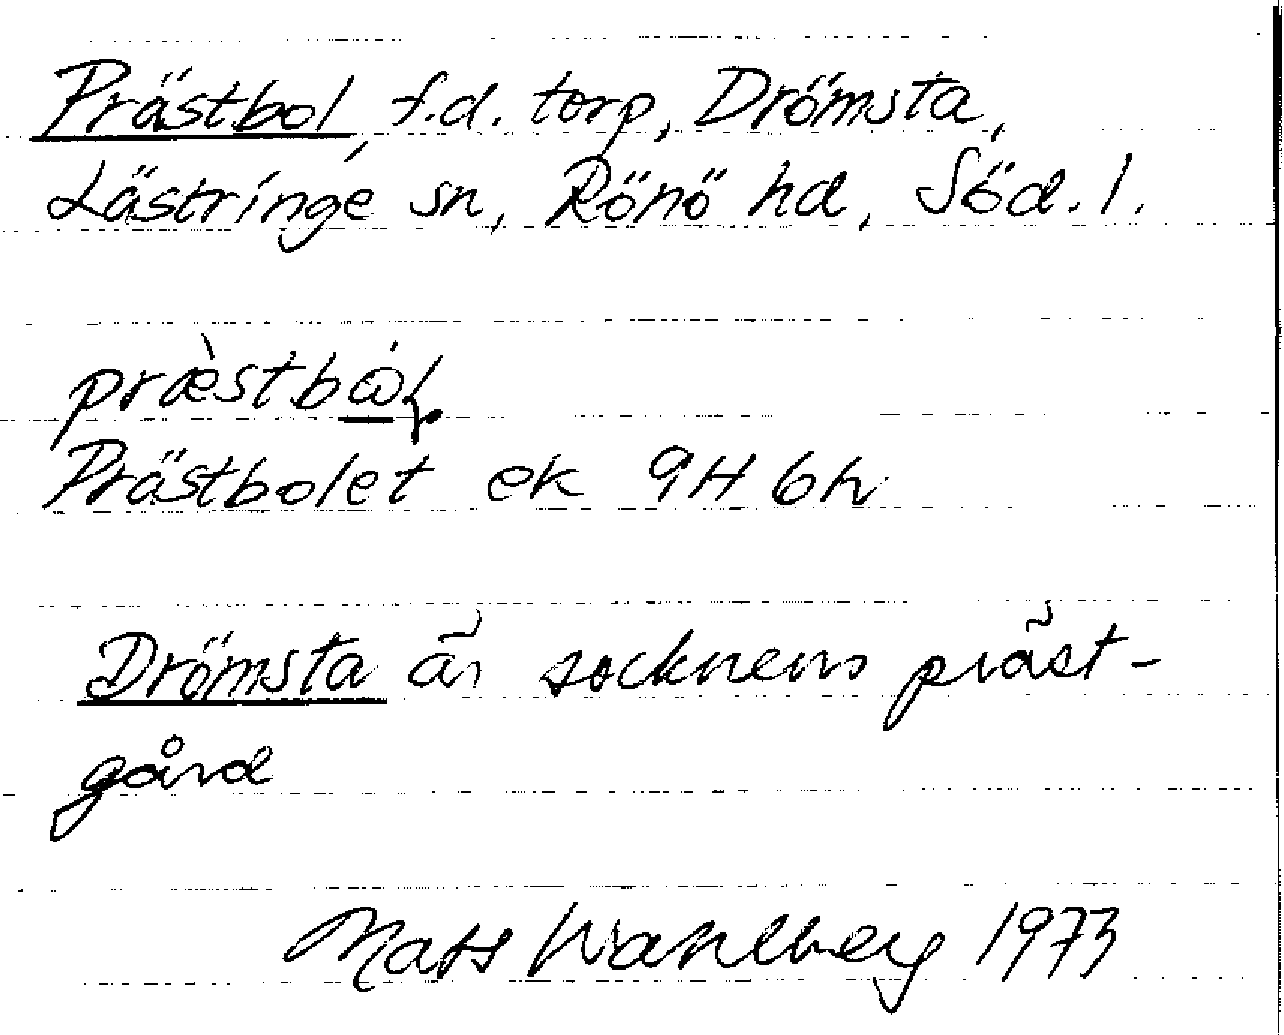 Prästbol, f.d. torp, Drömsta,
Lästringe sn, Rönö hd, Söd. l.
præ̀stbώ̲ɫ
Prästbolet ek 9H 6h
Drömsta är socknens präst-
gård
Mats Wahlberg 1973